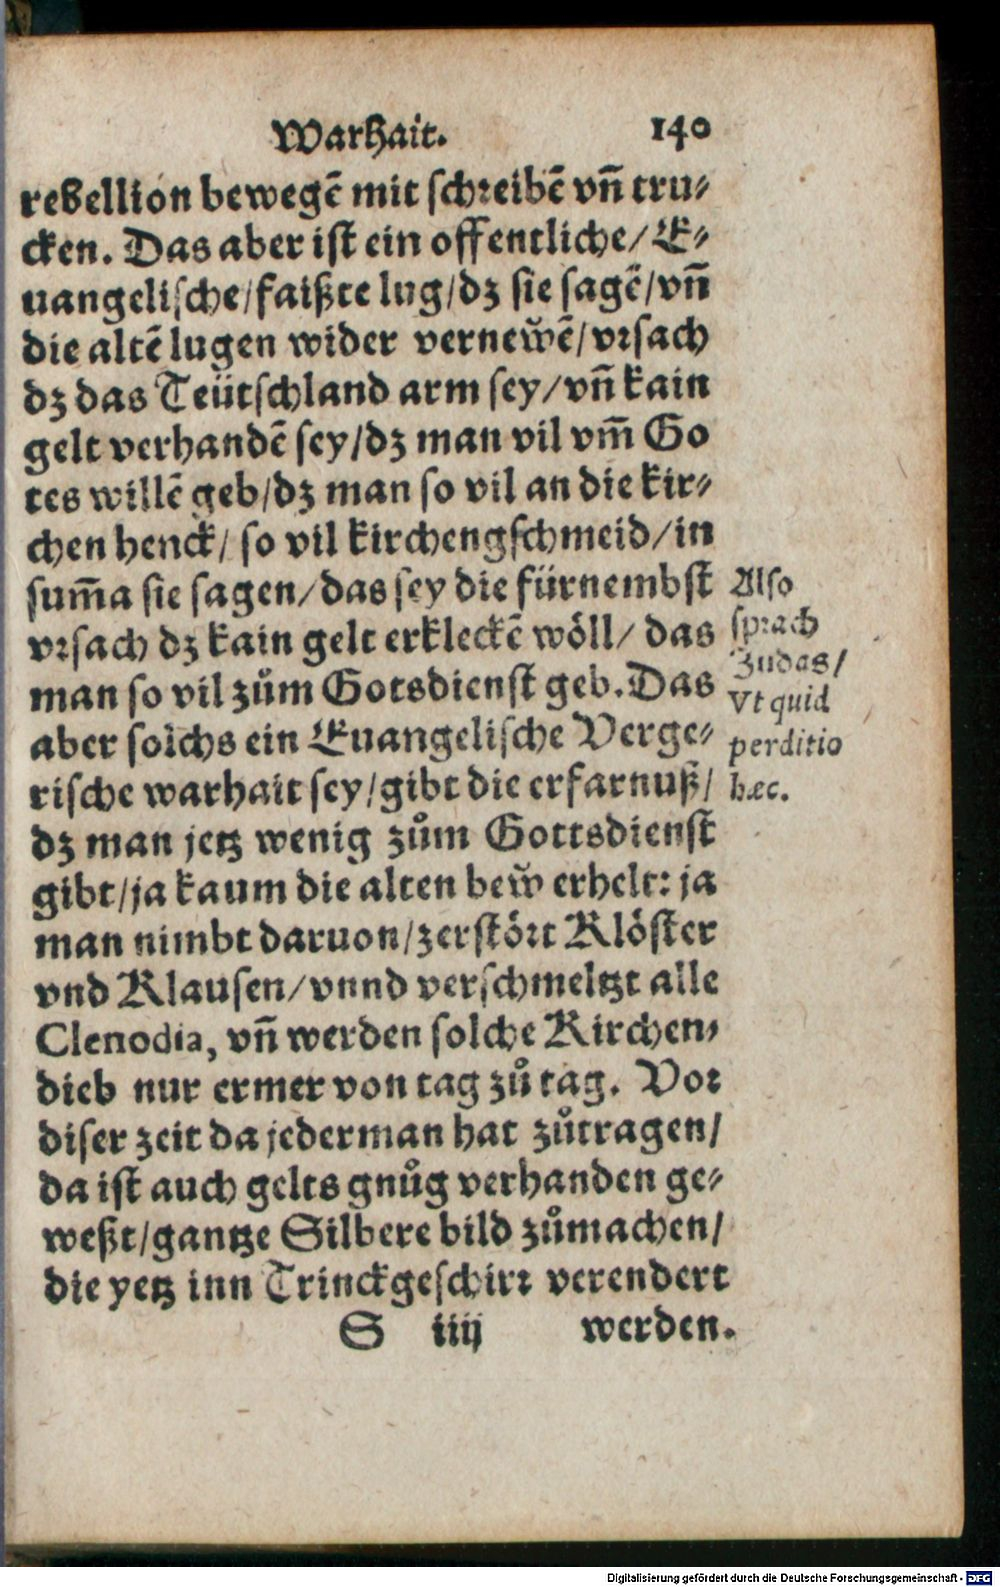 Warhait. 140
rebellion bewegẽ mit schreibẽ vñ tru-
cken. Das aber ist ein offentliche/ E-
uangelische/faißte lug/dz sie sagẽ/vñ
die altẽ lugen wider vernew̌ẽ/vrsach
dz das Teütschland arm sey/vñ kain
gelt verhandẽ sey/dz man vil vm̃ Go
tes willẽ geb/dz man so vil an die kir-
chen henck/ so vil kirchengschmeid/in
sum̃a sie sagen/das sey die fürnembst
vrsach dz kain gelt erkleckẽ wöll/ das
man so vil zům Gotsdienst geb. Das
aber solchs ein Euangelische Verge-
rische warhait sey/gibt die erfarnuß/
dz man jetz wenig zům Gottsdienst
gibt/ja kaum die alten bew̌ erhelt: ja
man nimbt daruon/zerstört Klöster
vnd Klausen/vnnd verschmeltzt alle
Clenodia, vñ werden solche Kirchen-
dieb nur ermer von tag zů tag. Vor
diser zeit da jederman hat zůtragen/
da ist auch gelts gnůg verhanden ge-
weßt/gantze Silbere bild zůmachen/
die yetz inn Trinckgeschirr verendert
S iiij werden.
Also
sprach
Judas/
Vt quid
perditio
hæc.
Digitalisierung gefördert durch die Deutsche Forschungsgemeinschaft - DFG